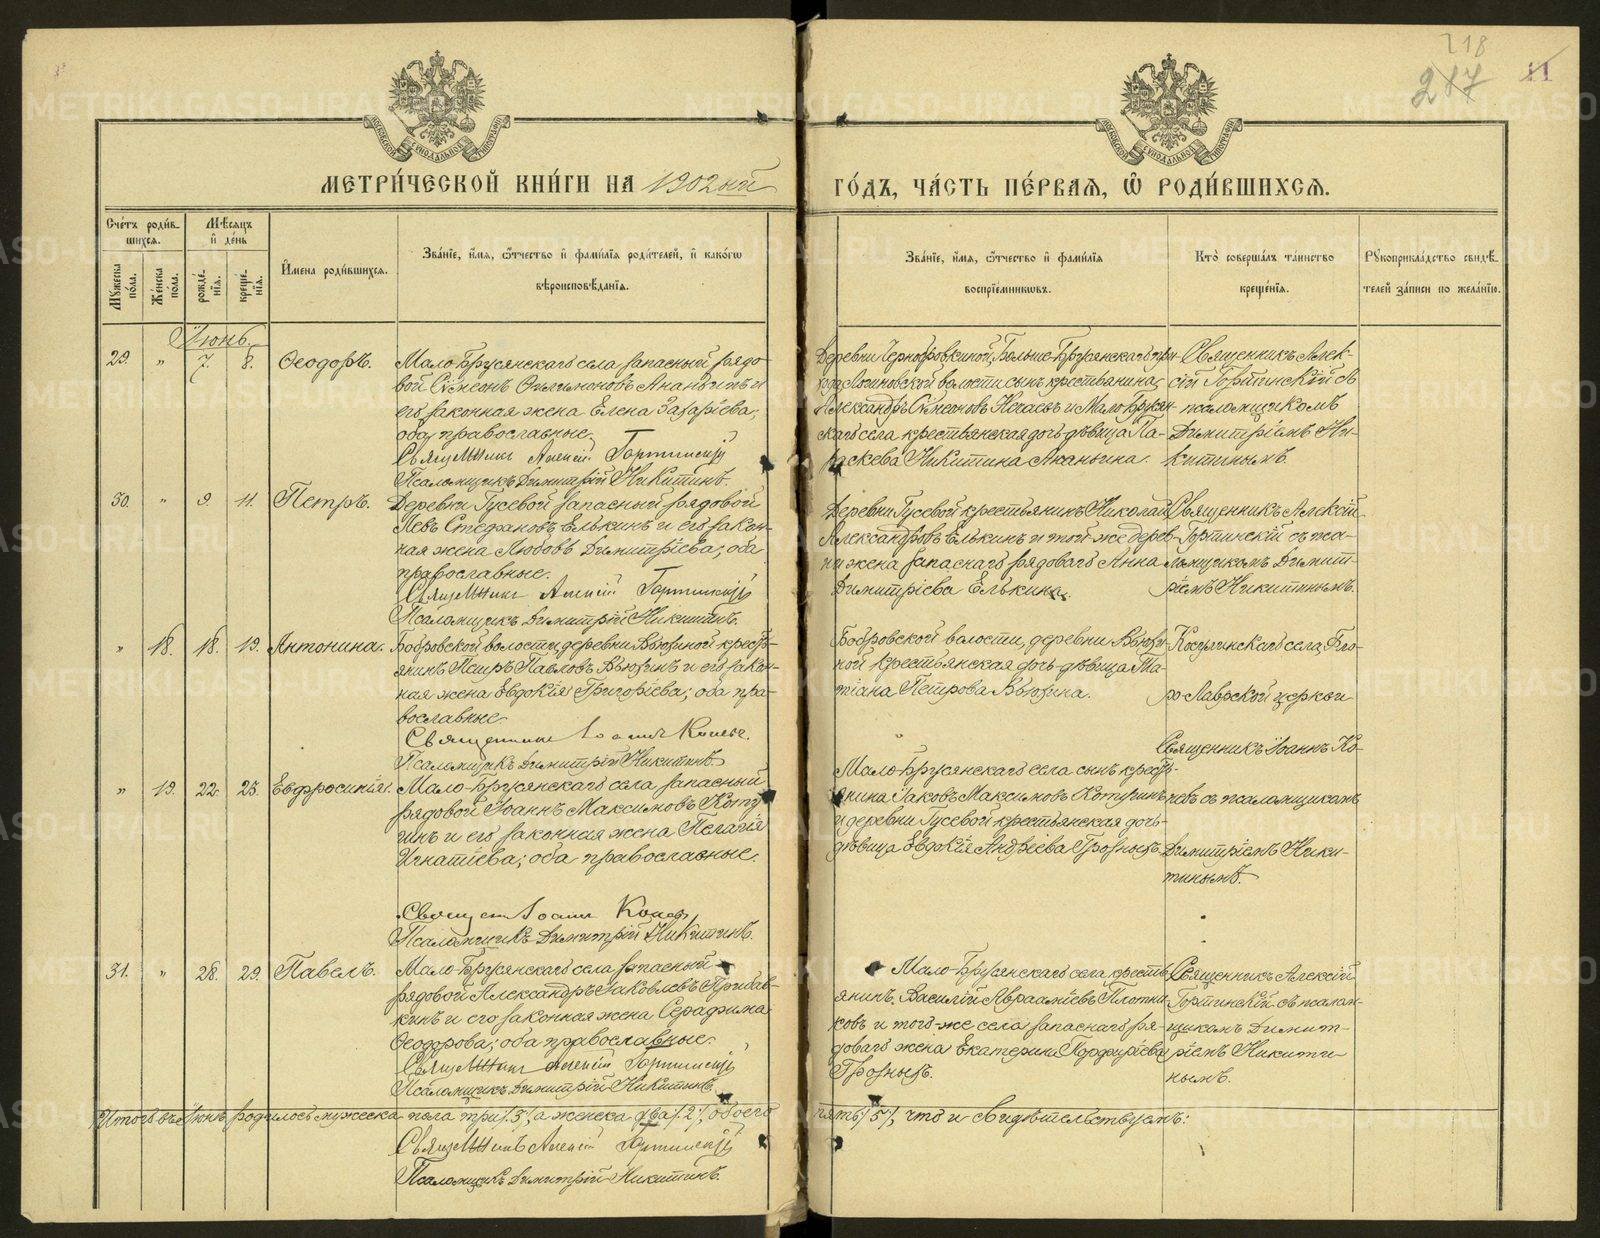 218
217
11
МЕТРИ́ЧЕСКОЙ КНИ́ГИ НА 1902ый ГО́ДЪ, ЧА́СТЬ ПЕ́РВАЯ, Ѽ РОДИ́ВШИХСЯ.
Сче́тъ роди́в-
шихся.
Мѣ́сяцъ
и де́нь
Мꙋ́жеска по́ла.
Же́нска по́ла.
рожде́-
нїя.
креще́-
нїя.
И҆мена роди́вшихся.
Зва́нїе, и҆́мя, ѻ҆́тчество и҆ фами́лїя роди́телей, и҆ како́гѡ
вѣроисповѣ́данїя.
Зва́нїе, и҆́мя, ѻ҆́тчество и҆ фами́лїя
воспрїе́мникѡвъ.
Кто̀ соверша́лъ та́инство
креще́нїя.
Рꙋкоприкла́дство свидѣ́-
телей за́писи по жела́нїю.
Іюнь.
29. „ 7. 8. Ѳеодоръ.
Мало-Брусянскаго села запасный рядо-
вой Сѵмеонъ Филимоновъ Ананьинъ и
его законная жена Елена Захаріева;
оба православные.
Священникъ Алексій Гортинскій
Псаломщикъ Димитрій Никитинъ.
Деревни Чернобровкиной, Больше-Брусянскаго при-
хода Логиновской волости сынъ крестьянина,
Александръ Сѵмеоновъ Нечаевъ и Мало-Брусян-
скаго села крестьянская дочь-дѣвица Па-
раскева Никитина Ананьина.
Священникъ Алек-
сій Гортинскій съ
псаломщикомъ
Димитріемъ Ни-
китинымъ.
30. „ 9. 11. Петръ.
Деревни Гусевой запасный рядовой
Левъ Стефановъ Елькинъ и его закон-
ная жена Любовь Димитріева; оба
православные.
Священникъ Алексій Гортинскій
Псаломщикъ Димитрій Никитинъ.
Деревни Гусевой крестьянинъ Николай
Александровъ Елькинъ и той же дерев-
ни жена запаснаго рядоваго Анна
Димитріева Елькина.
Священникъ Алексій
Гортинскій съ пса-
ломщикомъ Димит-
ріемъ Никитинымъ.
„ 18. 18. 19. Антонина.
Бобровской волости, деревни Вьюхиной крестъ-
янинъ Павловъ Вьюхинъ и его закон-
ная жена Евдокія Григоріева; оба пра-
вославные.
Священникъ Іоаннъ
Псаломщикъ Димитрій Никитинъ
Бобровской волости, деревни Вьюхи-
ной крестьянская дочь-дѣвица Та-
тіана Петрова Вьюхина.
Косулинскаго села, Фло-
ро-Лаврской церкви
Священникъ Іоаннъ Ко-
невъ съ псаломщикомъ
Димитріемъ Ники-
тинымъ.
„ 19. 22. 23. Евфросинія.
Мало-Брусянскаго села запасный
рядовой Іоаннъ Максимовъ Коту-
гинъ и его законная жена Пелагія
Игнатіева; оба православные.
Священ Іоаннъ
Псаломщикъ Димитрій Никитинъ.
Мало-Брусянскаго села сынъ кресть-
янина Іаковъ Максимовъ Котугинъ
и деревни Гусевой крестьянская дочь-
дѣвица Евдокія Андреева Грозныхъ.
31. „ 28. 29. Павелъ.
Мало-Брусянскаго села запасный
рядовой Александръ Іаковлевъ Прибав-
кинъ и его законная жена Серафима
Ѳеодорова; оба православные.
Священникъ Алексій Гортинскій
Псаломщикъ Димитрій Никитинъ.
Мало-Брусянскаго села кресть-
янинъ, Василій Авраамовъ Плотни-
ковъ и того-же села запаснаго ря-
доваго жена Екатерина Порфиріева
Грозныхъ.
Священникъ Алексій
Гортинскій съ псалом-
щикомъ Димит-
ріемъ Никити-
нымъ.
Итого въ Іюнѣ родилось мужеска пола три /3/, а женска два /2/, обоего пять /5/, что и свидѣтельствуемъ:
Священникъ Алексій Гортинскій
Псаломщикъ Димитрій Никитинъ.